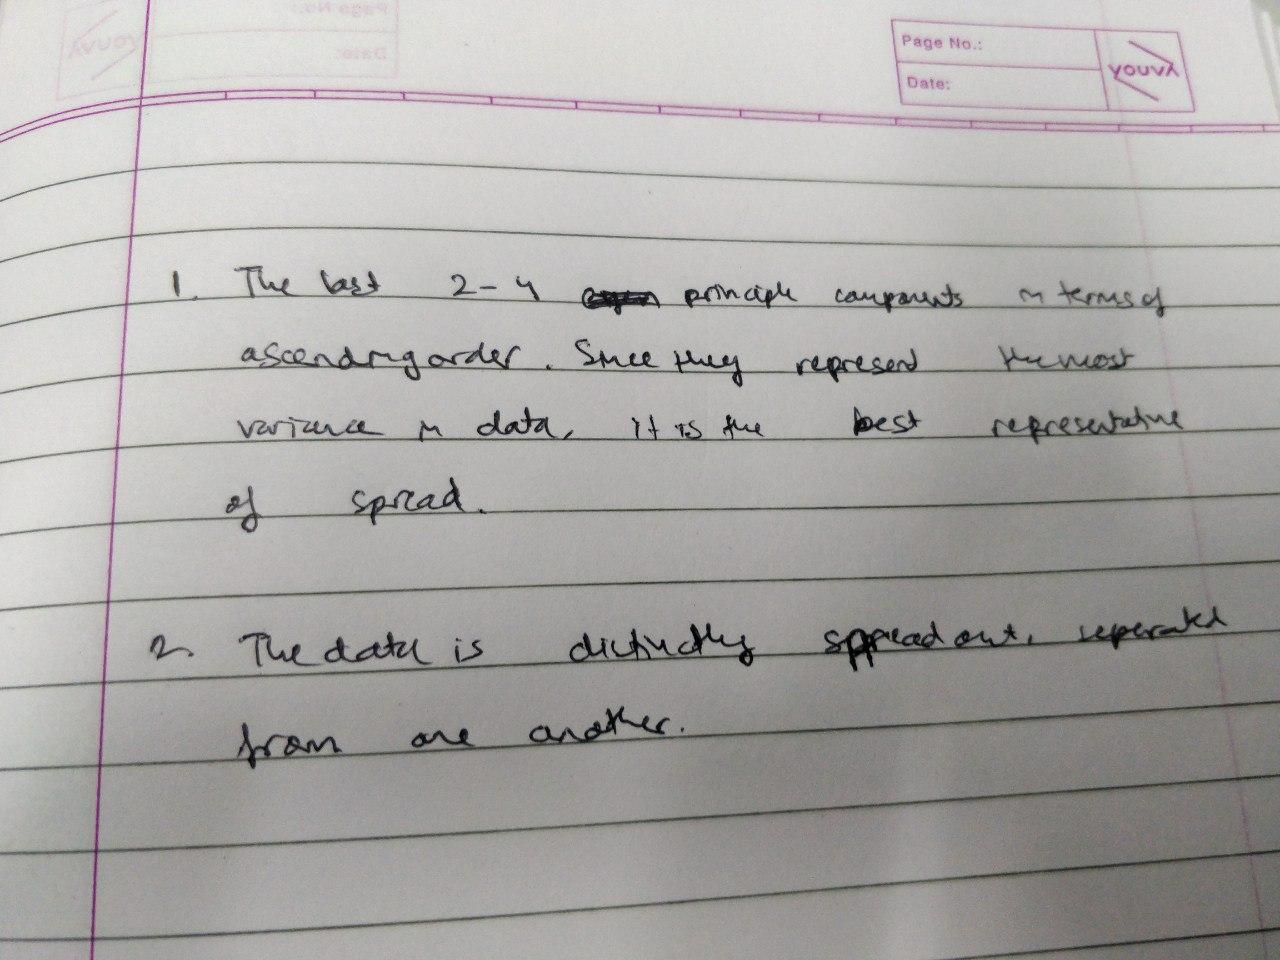 Page No.:
Date:
YOUVA
1. The last 2-4 principle components in terms of
ascending order. Since they represent the most
variance in data, it is the best representative
of spread.
2. The data is distinctly spread out, seperated
from one another.